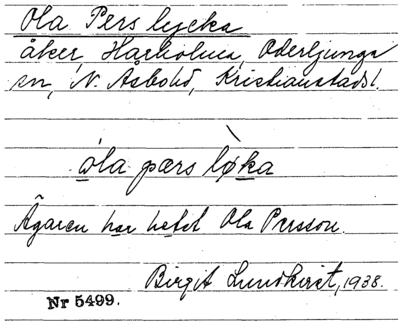 Ola Pers lycka
åker, Harholma, Oderljunga
sn, N. Åsbohd, Kristianstadsl.
ola pærs løka
Ägaren har hetat Ola Persson.
Birgit Lundkvist, 1938.
Nr 5499.